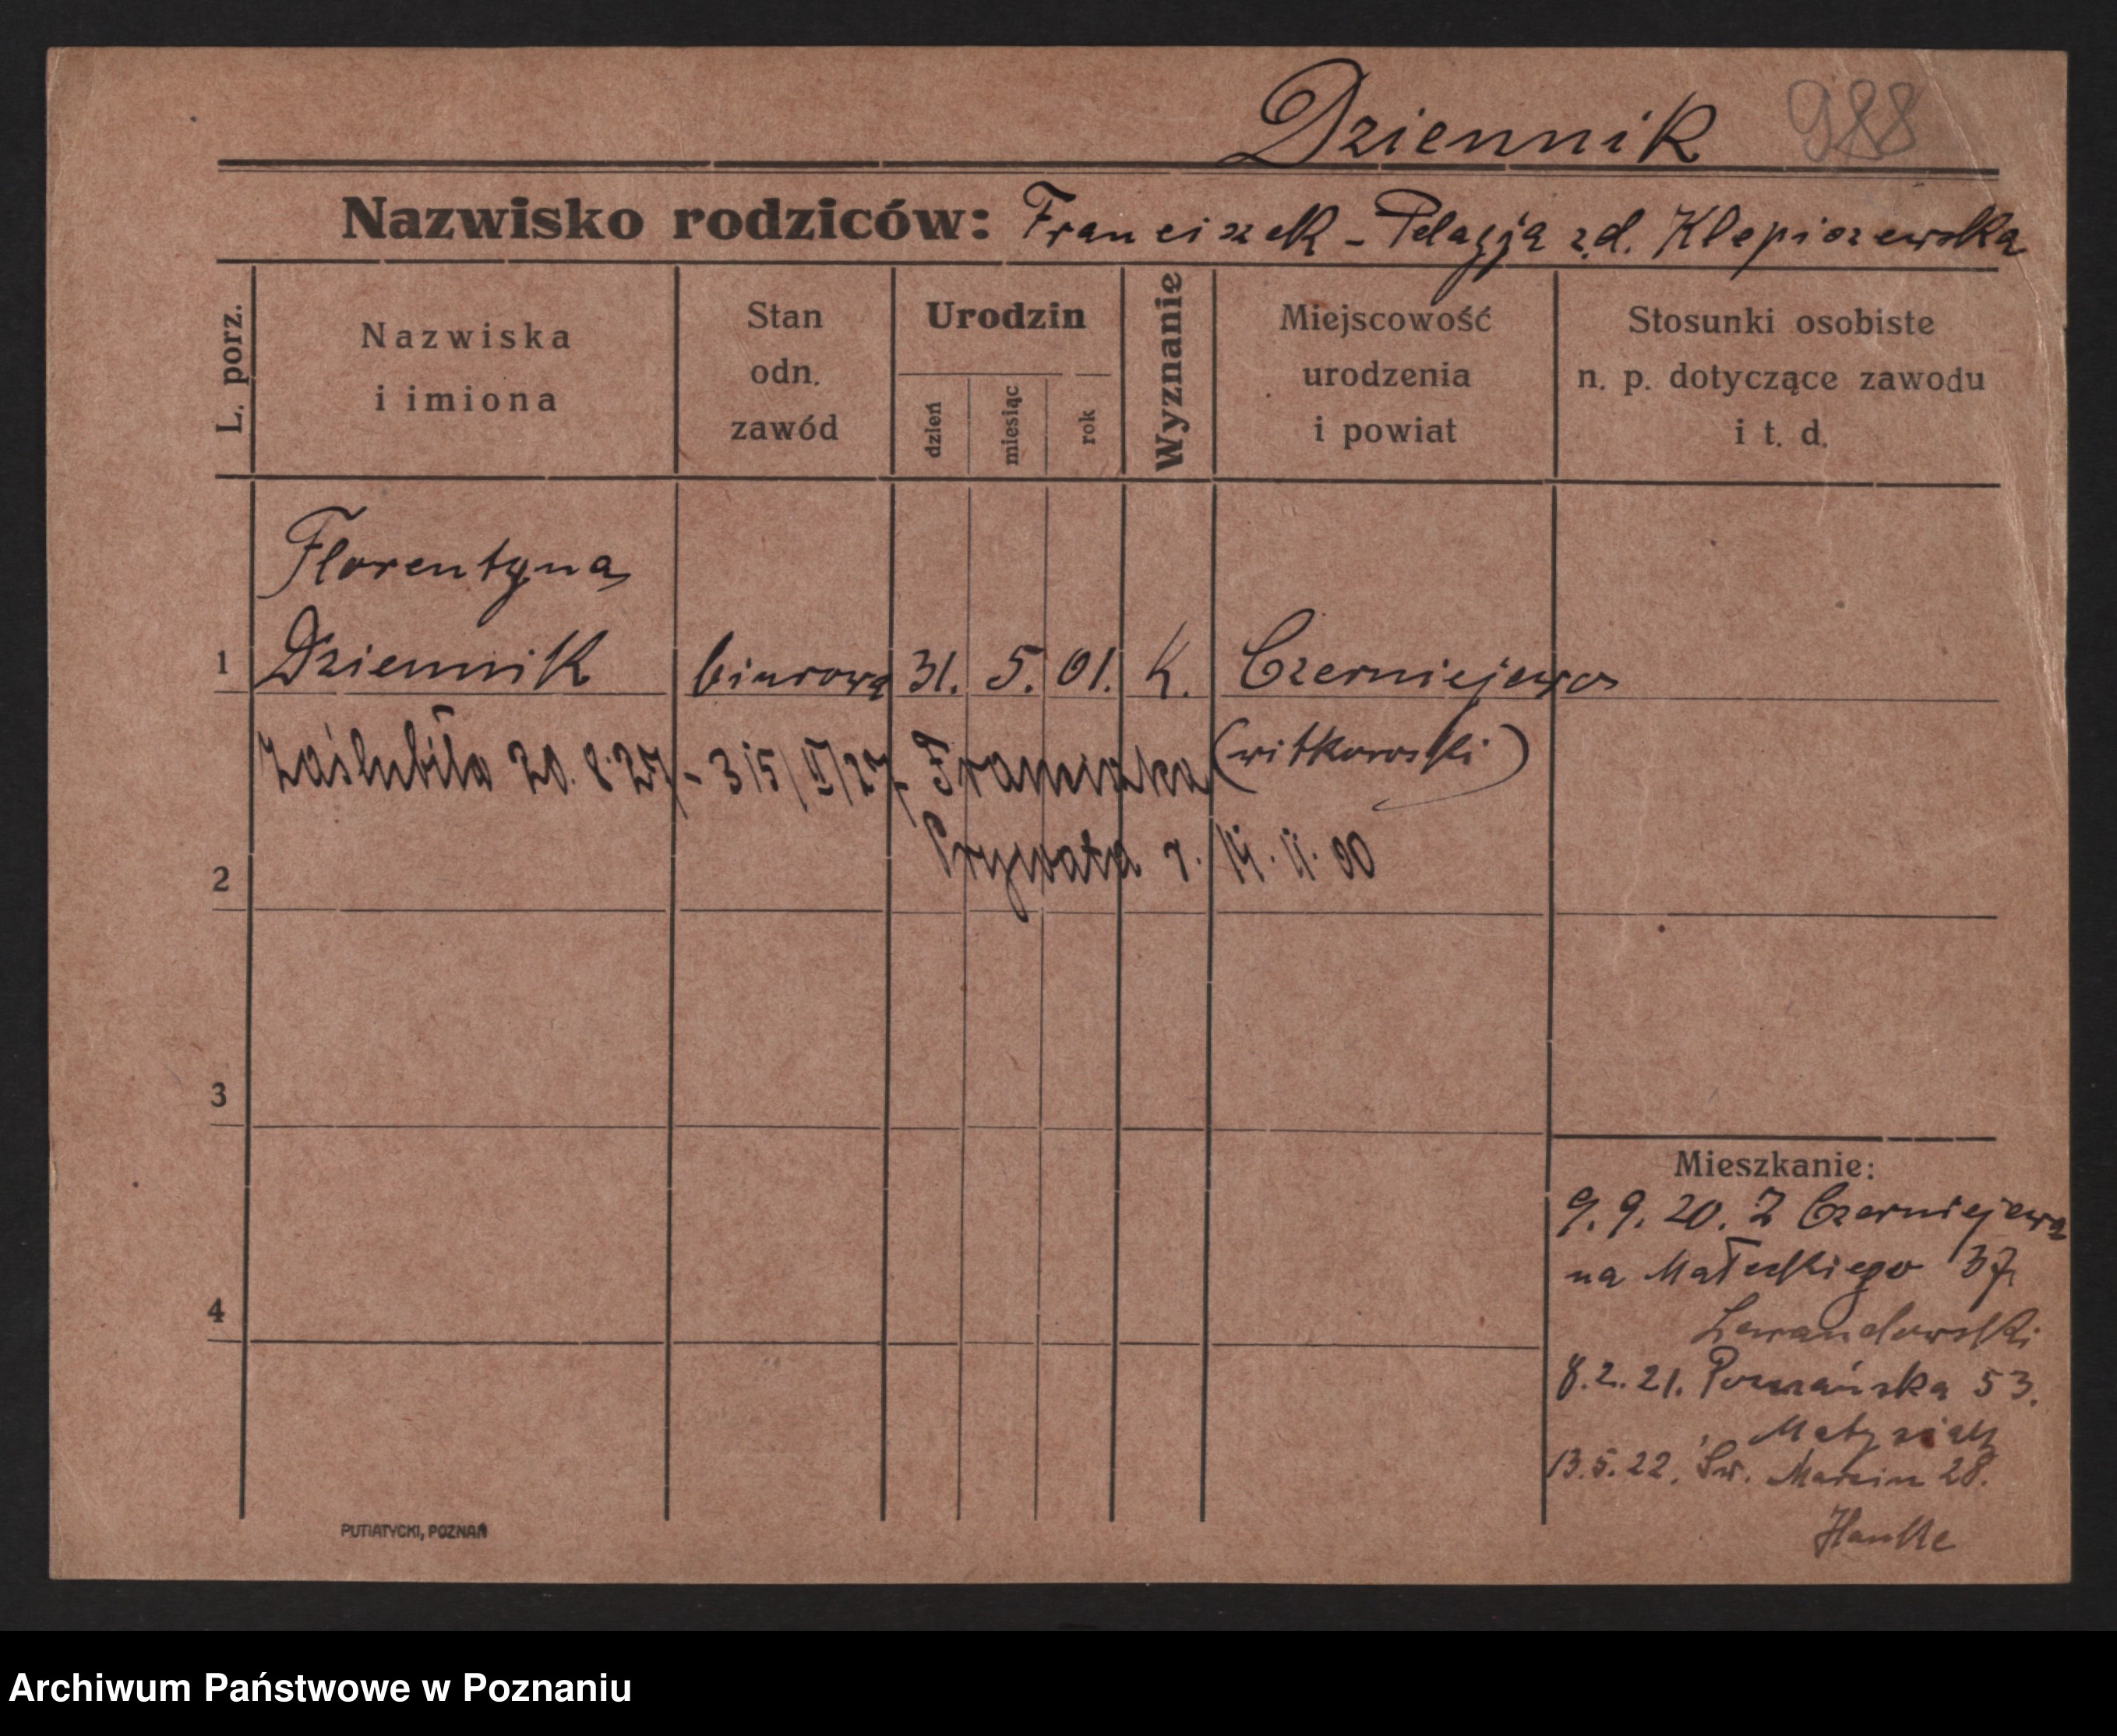 Dziennik 988
Nazwisko rodziców: Franciszek - Pelagja z d. Klepiszewska
L. porz.
Nazwiska
i imiona
Stan
odn.
zawód
Urodzin
dzień
miesiąc
rok
Wyznanie
Miejscowość
urodzenia
i powiat
Stosunki osobiste
n. p. dotyczące zawodu
i t. d.
Florentyna
1 Dziennik biurowa 31. 5. 01. K. Czerniejewo
zaślubiła 20.8.27 - 315/II/27 Franciszka (witkowski)
Prywata r. 14.11.00
2
3
4
Mieszkanie:
9.9.20. Z Czerniejewa
na Małeckiego 37
Lewandowski
8.2.21. Poznańska 53.
Matysiak
13.5.22. Św. Marcin 28.
Hanke
PUTIATYCKI, POZNAŃ
Archiwum Państwowe w Poznaniu